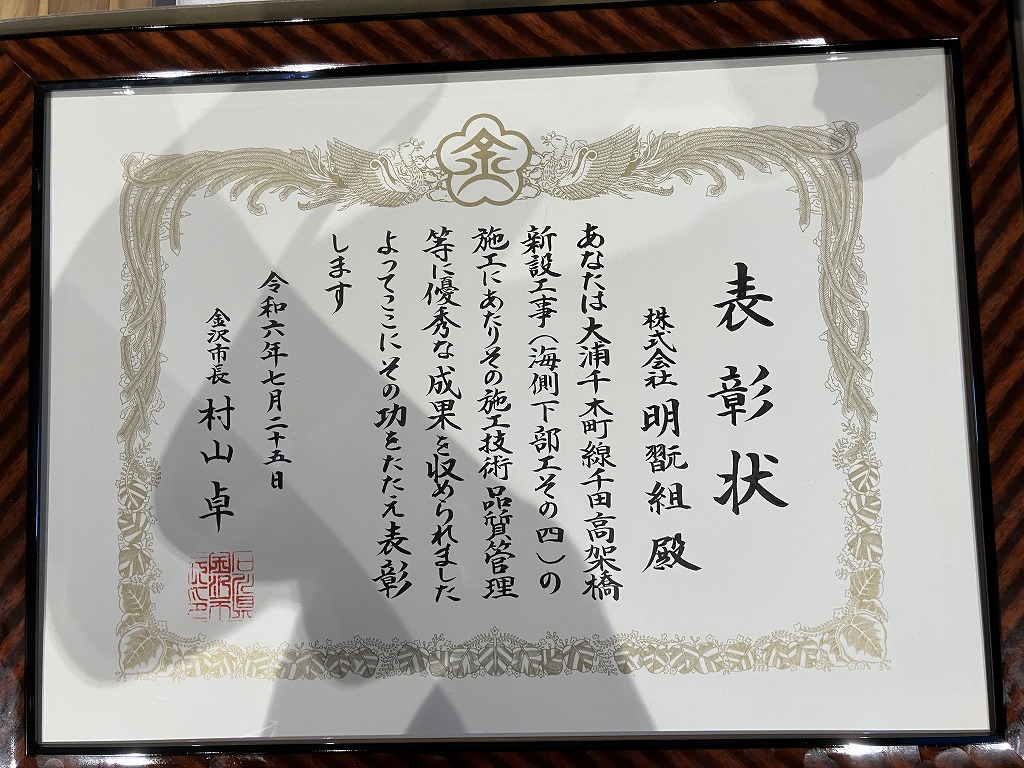 金
表彰状
株式会社 明翫組 殿
あなたは大浦千木町線千田高架橋
新設工事(海側下部工その四)の
施工にあたりその施工技術品質管理
等に優秀な成果を収められました
よってここにその功をたたえ表彰
します
令和六年七月二十五日
金沢市長 村山 卓